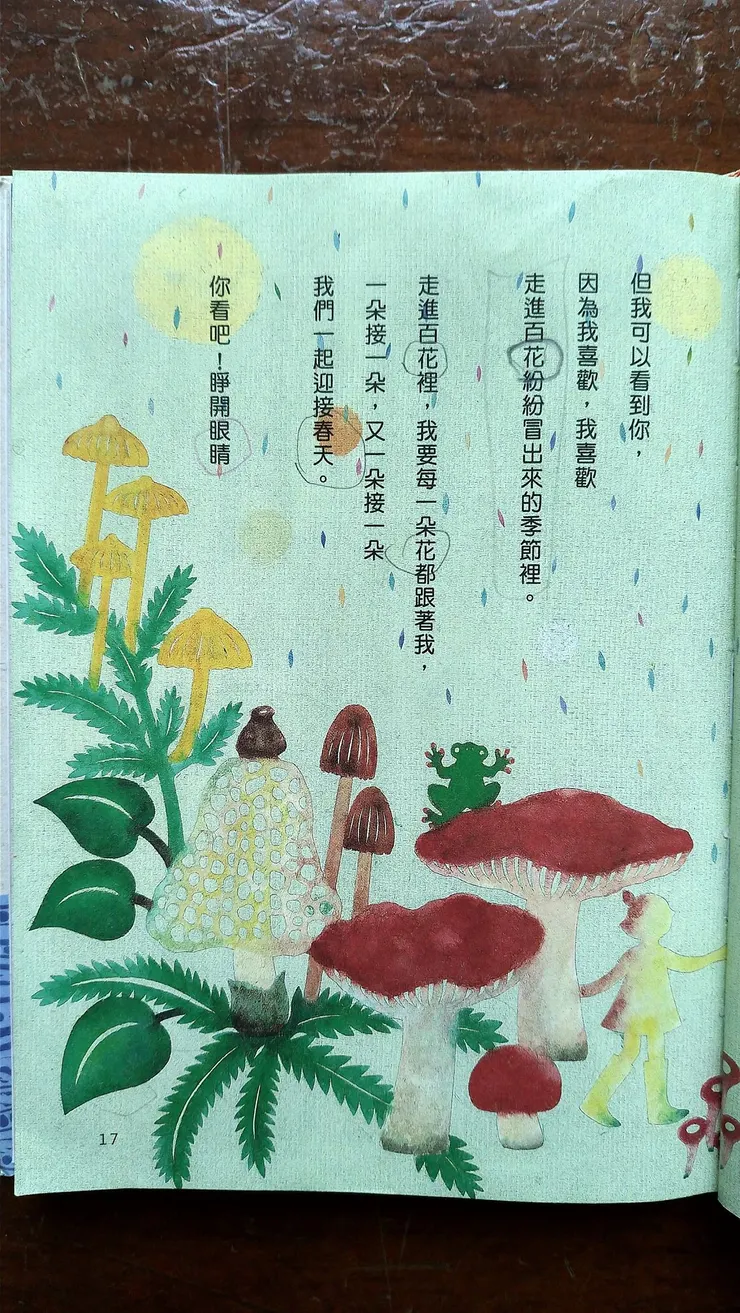 但我可以看到你，
因為我喜歡，我喜歡
走進百花紛紛冒出來的季節裡。
走進百花裡，我要每一朵花都跟著我，
一朵接一朵，又一朵接一朵
我們一起迎接春天。
你看吧！睜開眼睛
17